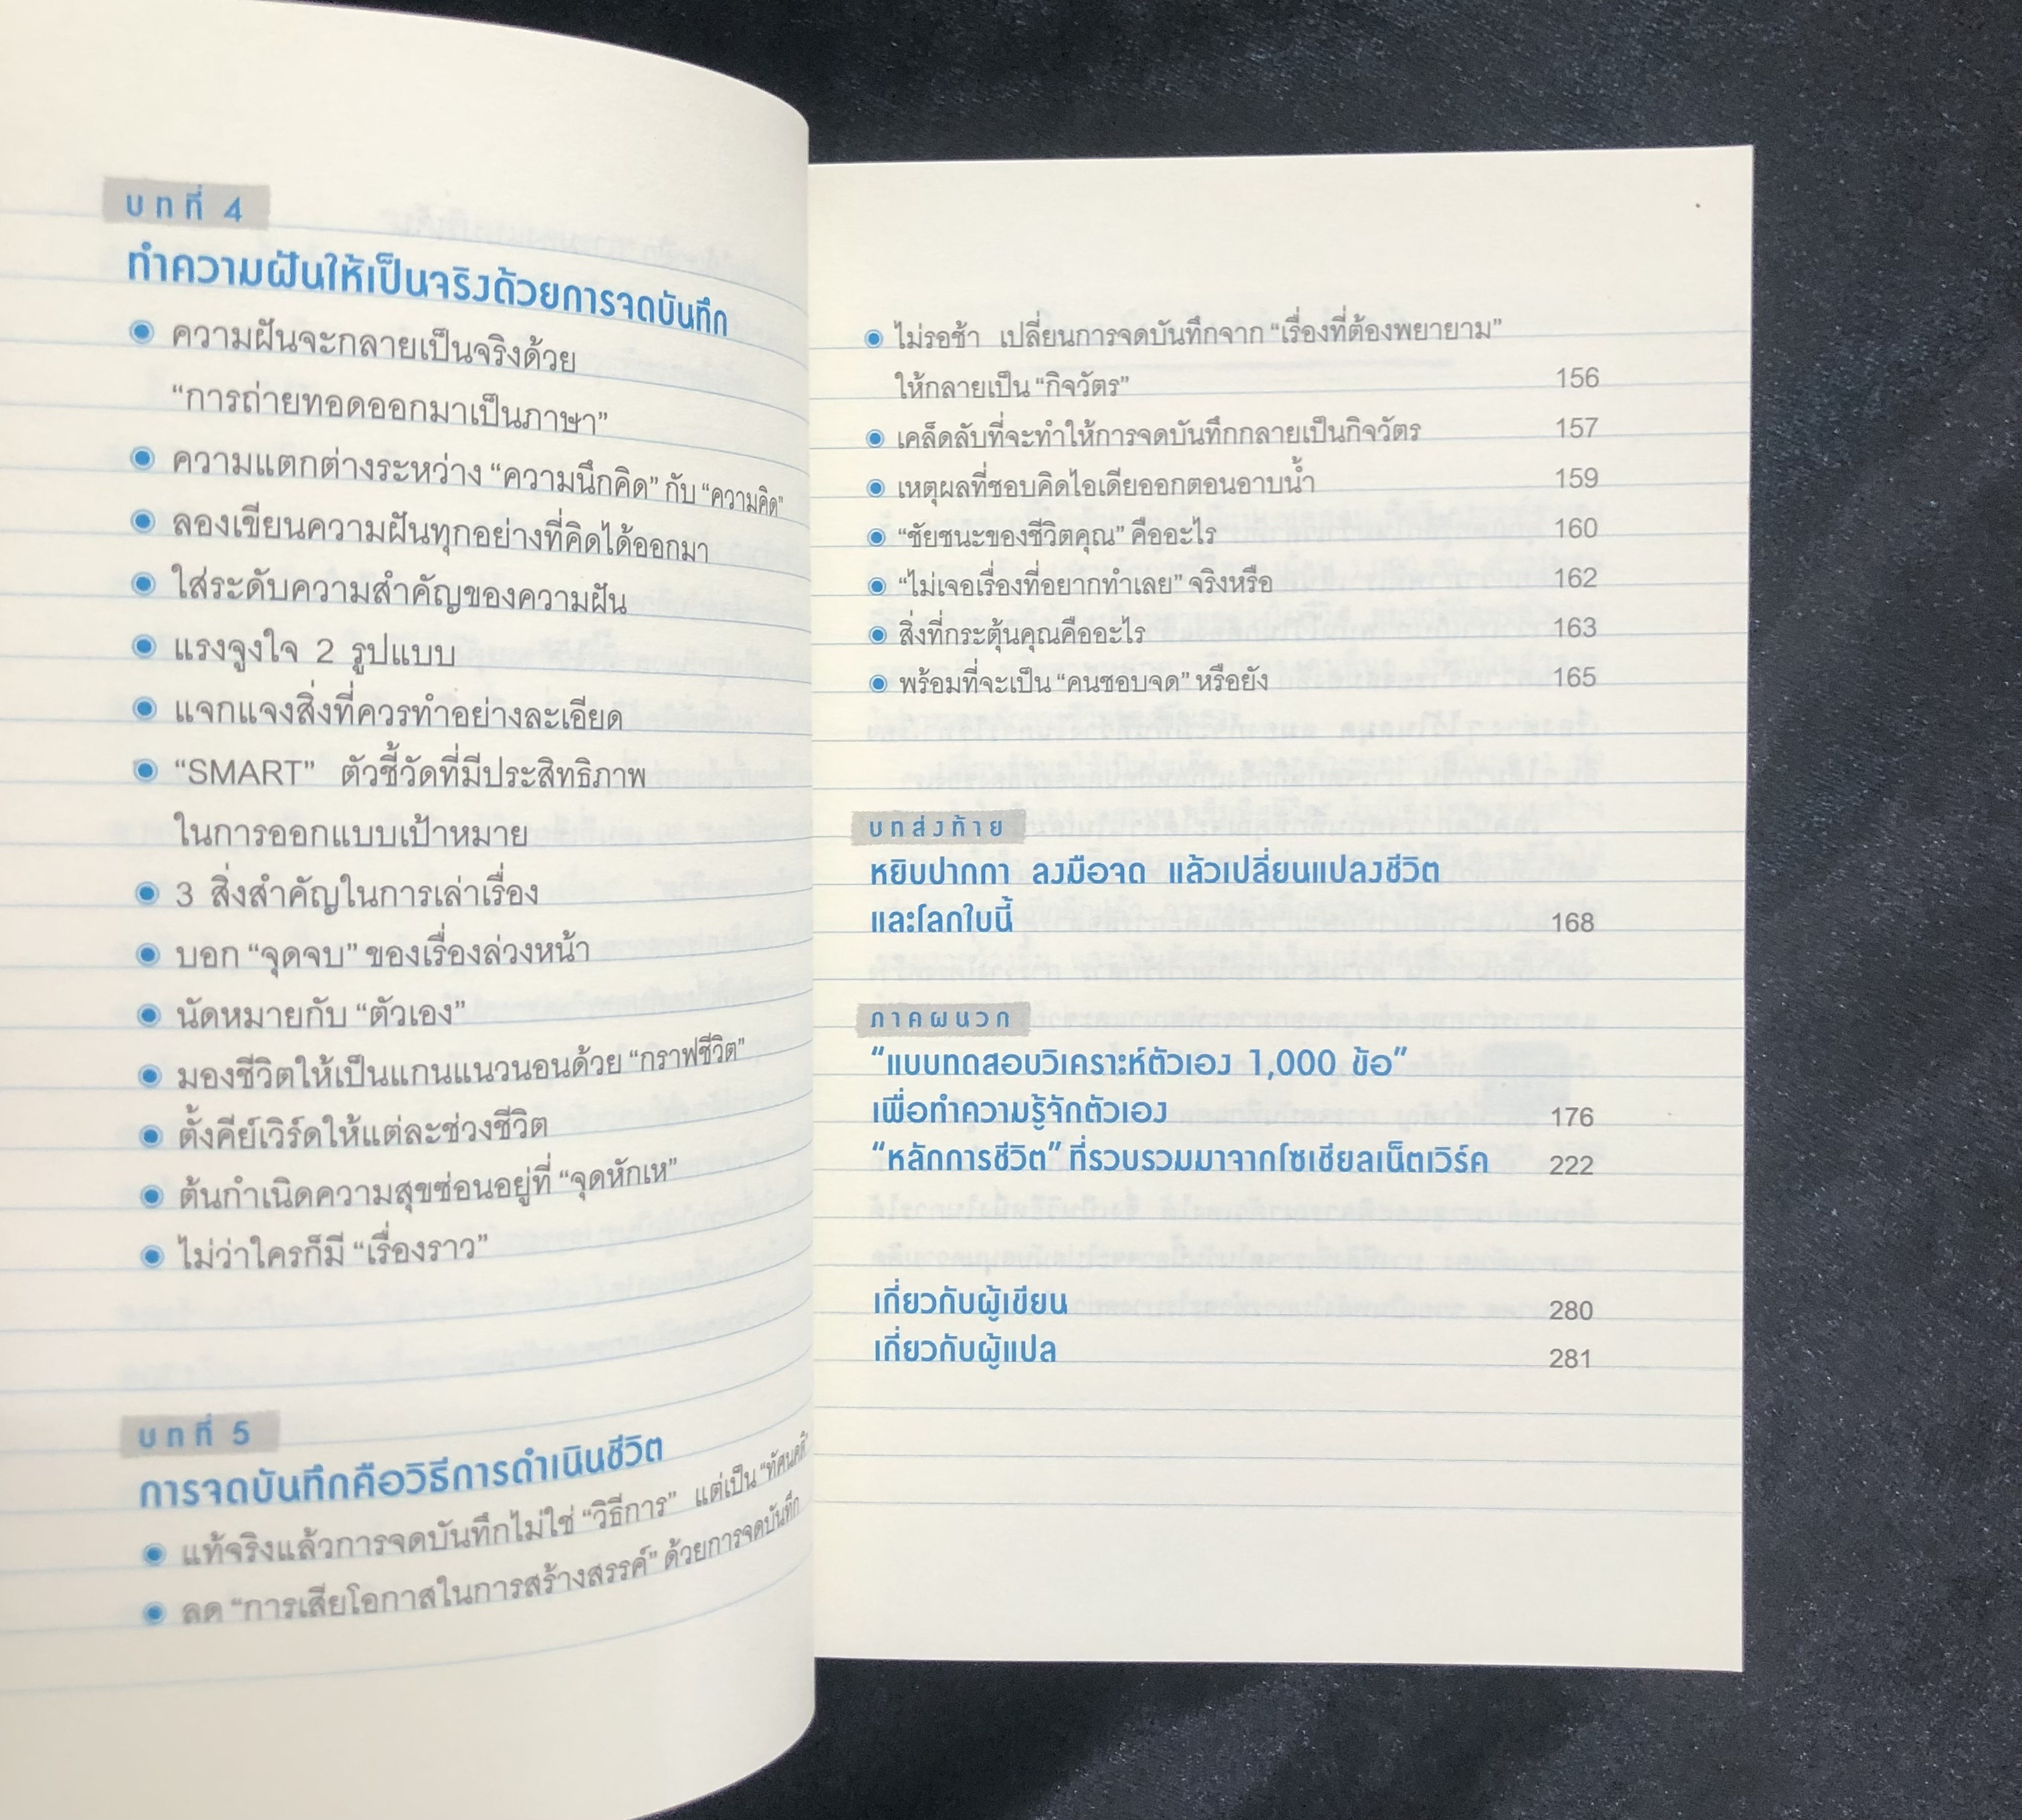 บทที่ 4
ทำความฝันให้เป็นจริงด้วยการจดบันทึก
ความฝันจะกลายเป็นจริงด้วย
“การถ่ายทอดออกมาเป็นภาษา”
ความแตกต่างระหว่าง “ความนึกคิด” กับ “ความคิด”
ลองเขียนความฝันทุกอย่างที่คิดได้ออกมา
ใส่ระดับความสำคัญของความฝัน
แรงจูงใจ 2 รูปแบบ
แจกแจงสิ่งที่ควรทำอย่างละเอียด
“SMART” ตัวชี้วัดที่มีประสิทธิภาพ
ในการออกแบบเป้าหมาย
3 สิ่งสำคัญในการเล่าเรื่อง
บอก “จุดจบ” ของเรื่องล่วงหน้า
นัดหมายกับ “ตัวเอง”
มองชีวิตให้เป็นแกนแนวนอนด้วย “กราฟชีวิต”
ตั้งคีย์เวิร์ดให้แต่ละช่วงชีวิต
ต้นกำเนิดความสุขซ่อนอยู่ที่ “จุดหักเห”
ไม่ว่าใครก็มี “เรื่องราว”
บทที่ 5
การจดบันทึกคือวิธีการดำเนินชีวิต
แท้จริงแล้วการจดบันทึกไม่ใช่ “วิธีการ” แต่เป็น “ทัศนคติ
ลด “การเสียโอกาสในการสร้างสรรค์” ด้วยการจดบันทึก
ไม่รอช้า เปลี่ยนการจดบันทึกจาก “เรื่องที่ต้องพยายาม”
ให้กลายเป็น “กิจวัตร” 156
เคล็ดลับที่จะทำให้การจดบันทึกกลายเป็นกิจวัตร 157
เหตุผลที่ชอบคิดไอเดียออกตอนอาบน้ำ 159
“ชัยชนะของชีวิตคุณ” คืออะไร 160
“ไม่เจอเรื่องที่อยากทำเลย” จริงหรือ 162
สิ่งที่กระตุ้นคุณคืออะไร 163
พร้อมที่จะเป็น “คนชอบจด” หรือยัง 165
บทส่งท้าย
หยิบปากกา ลงมือจด แล้วเปลี่ยนแปลงชีวิต
และโลกใบนี้ 168
ภาคผนวก
“แบบทดสอบวิเคราะห์ตัวเอง 1,000 ข้อ”
เพื่อทำความรู้จักตัวเอง 176
“หลักการชีวิต” ที่รวบรวมมาจากโซเชียลเน็ตเวิร์ค 222
เกี่ยวกับผู้เขียน 280
เกี่ยวกับผู้แปล 281